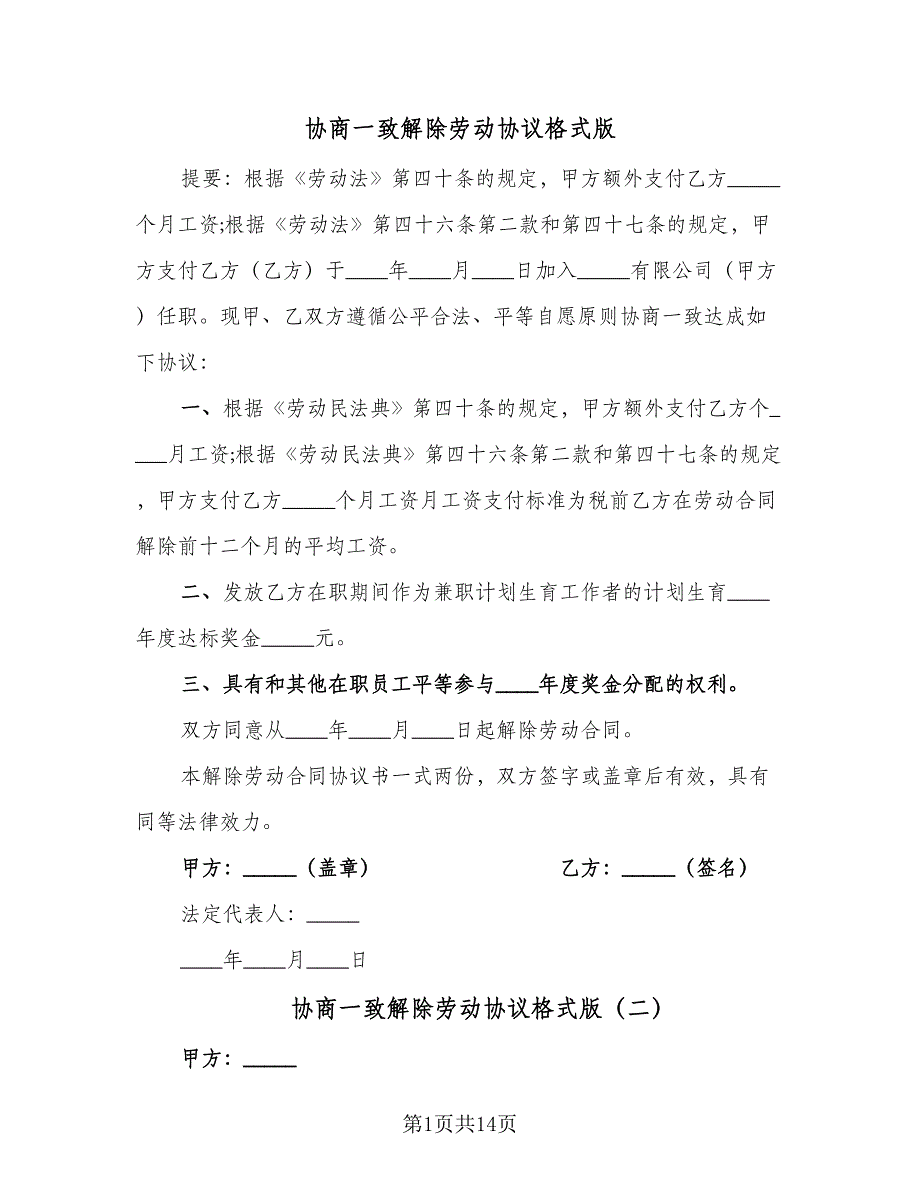 协商一致解除劳动协议格式版
提要：根据《劳动法》第四十条的规定，甲方额外支付乙方_____
个月工资;根据《劳动法》第四十六条第二款和第四十七条的规定，甲
方支付乙方（乙方）于____年____月____日加入_____有限公司（甲方
）任职。现甲、乙双方遵循公平合法、平等自愿原则协商一致达成如
下协议：
一、根据《劳动民法典》第四十条的规定，甲方额外支付乙方个_
___月工资;根据《劳动民法典》第四十六条第二款和第四十七条的规定
，甲方支付乙方_____个月工资月工资支付标准为税前乙方在劳动合同
解除前十二个月的平均工资。
二、发放乙方在职期间作为兼职计划生育工作者的计划生育____
年度达标奖金_____元。
三、具有和其他在职员工平等参与____年度奖金分配的权利。
双方同意从____年____月____日起解除劳动合同。
本解除劳动合同协议书一式两份，双方签字或盖章后有效，具有
同等法律效力。
甲方：_____（盖章） 乙方：_____（签名）
法定代表人：_____
____年____月____日
协商一致解除劳动协议格式版（二）
甲方：_____
第1页共14页